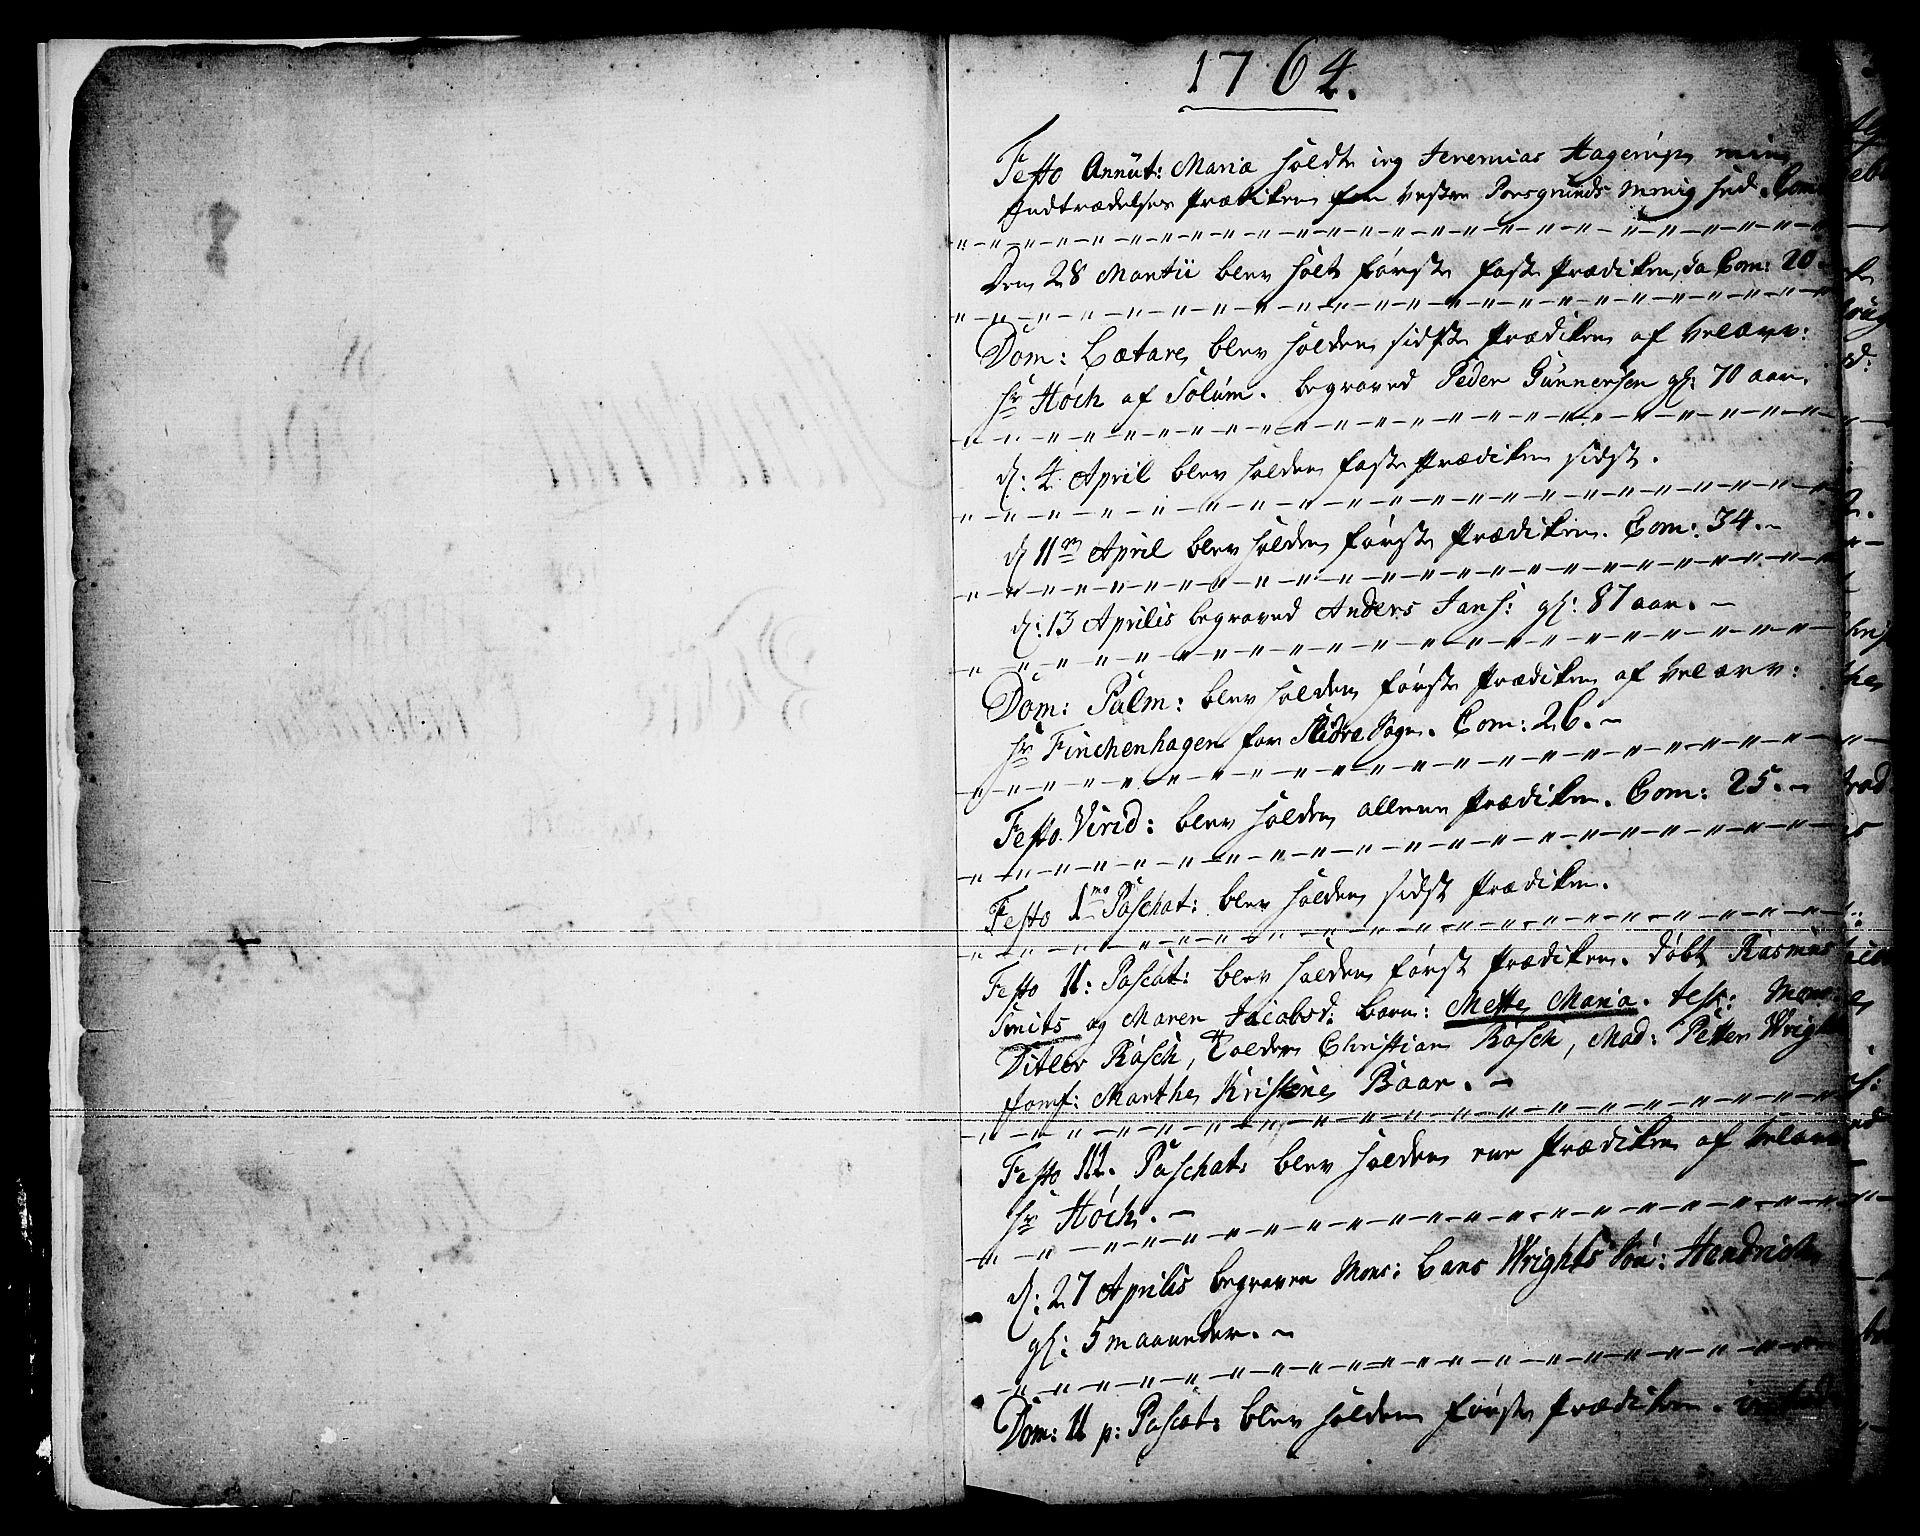 1764.
Festo Annut: Mariæ holdt ieg Jeremias Hagerup min
Indtrædelses Prædiken for Vestre Porsgrunds Menighed. Com
Den 28 Martii blev holt første faste Prædiken, da Com: 20
Dom: Lætare blev holden sidste Prædiken af Velærv:
Hr Höch af Solum. begraved Peder Gunnersen gl: 70 aar.
d: 4 April blev holden faste Prædiken sidst.
d 11te April blev holden første Prædiken. Com: 34.
d: 13 Aprilis begraved Anders Jans: gl: 87 aar.
Dom: Palm: blev holden første Prædiken af Velærv:
Hr Finchenhagen for Slidre Sogn. Com: 26.
Festo Virid: blev holden allene Prædiken. Com: 25.
Festo 1mo Paschat: blev holden sidst Prædiken.
Festo II: Pascat: blev holden først Prædiken. døbt Rasmus
Smits og Maren Jacobsd: barn: Mette Maria. test: Mons:
Ditlev Rasch, Tolder Christian Rasch, Mad: Petter Wright
Jomf: Marthe Kristene Baar.
Festo III. Paschat: blev holden een Prædiken af Velærv
Hr Höch.
d: 27 Aprilis begraven Mons: Lars Wrights Søn: Hendrich
gl: 5 maaneder.
Dom: II p: Pascat: blev holden første Prædiken.